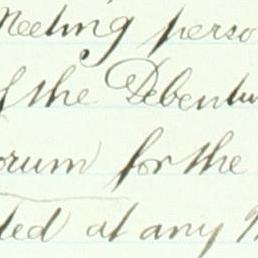 Meeting perso
of the Debentu
orum for the
ted at any M